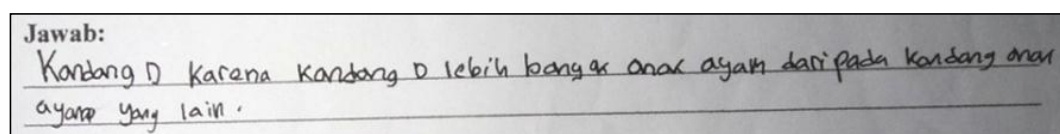 Jawab:
Kandang D Karena Kandang D lebih bangak anak ayam daripada kandang anak
ayam yang lain.